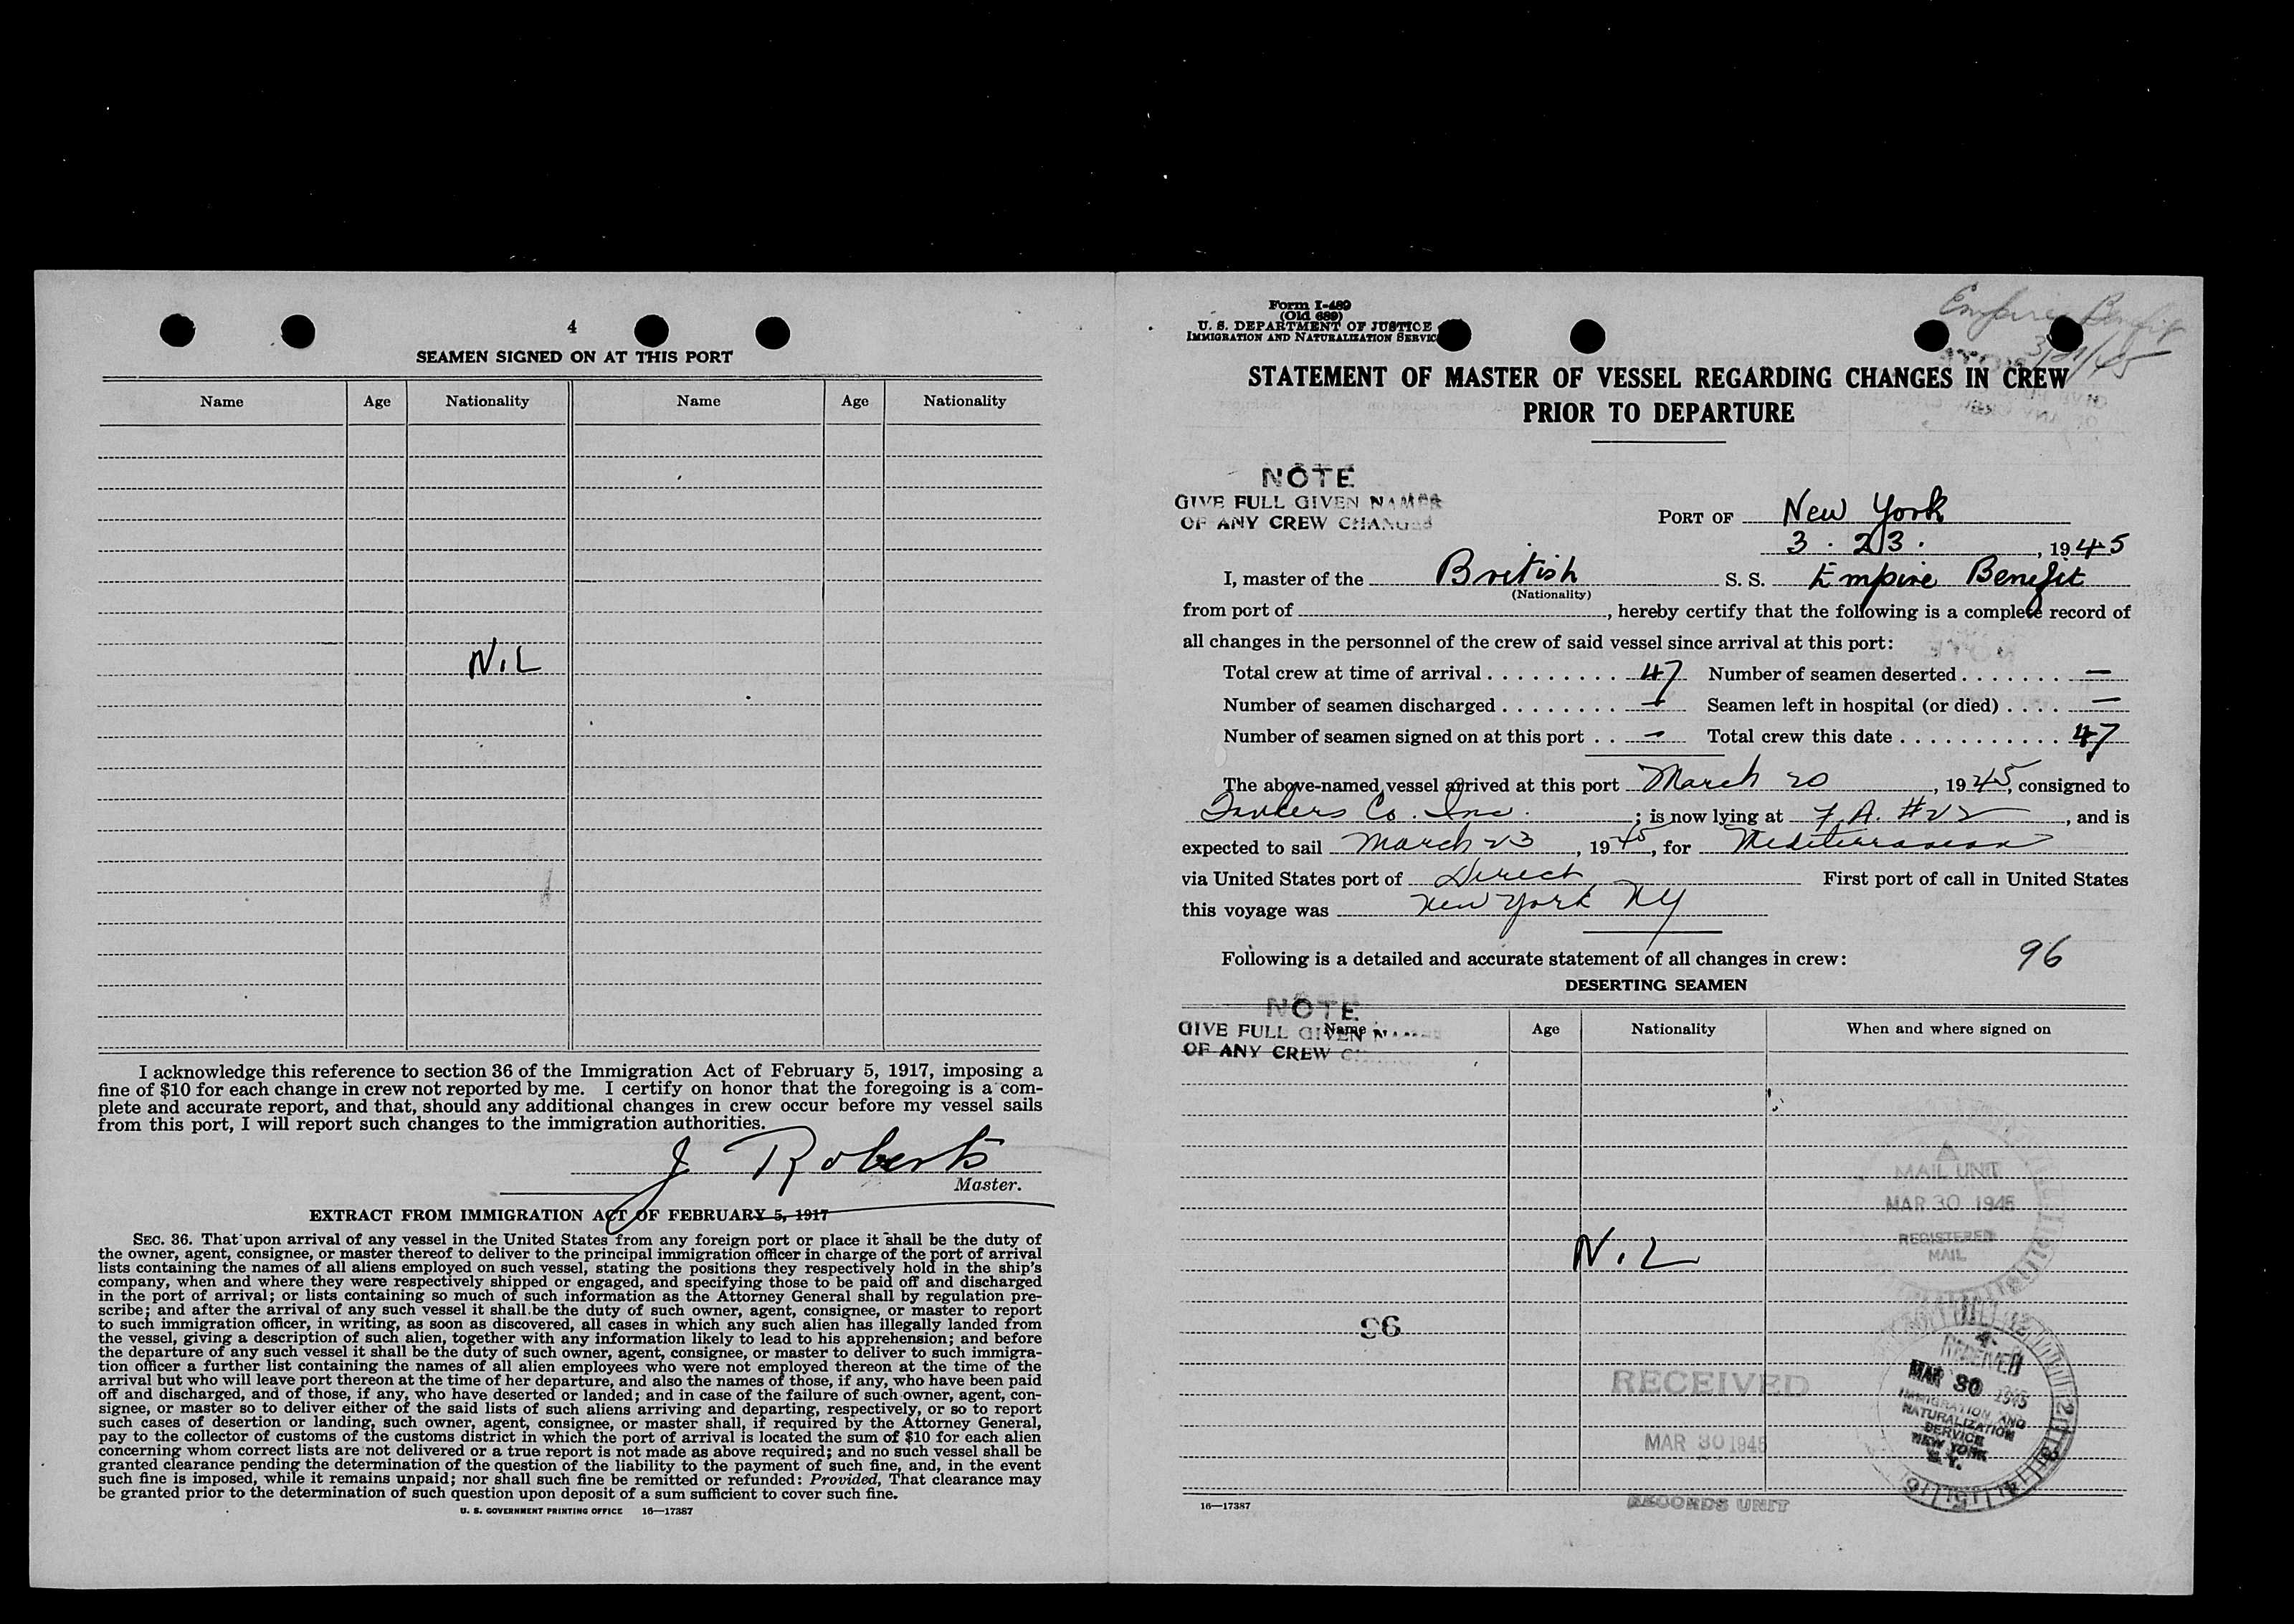 4
SEAMEN SIGNED ON AT THIS PORT
Name Age Nationality Name Age Nationality
NIL
I acknowledge this reference to section 36 of the Immigration Act of February 5, 1917, imposing a
fine of $10 for each change in crew not reported by me. I certify on honor that the foregoing is a com-
plete and accurate report, and that, should any additional changes in crew occur before my vessel sails
from this port, I will report such changes to the immigration authorities.
J Roberts
Master.
EXTRACT FROM IMMIGRATION ACT OF FEBRUARY 5, 1917
SEC. 36. That upon arrival of any vessel in the United States from any foreign port or place it shall be the duty of
the owner, agent, consignee, or master thereof to deliver to the principal immigration officer in charge of the port of arrival
lists containing the names of all aliens employed on such vessel, stating the positions they respectively hold in the ship's
company, when and where they were respectively shipped or engaged, and specifying those to be paid off and discharged
in the port of arrival; or lists containing so much of such information as the Attorney General shall by regulation pre-
scribe; and after the arrival of any such vessel it shall be the duty of such owner, agent, consignee, or master to report
to such immigration officer, in writing, as soon as discovered, all cases in which any such alien has illegally landed from
the vessel, giving a description of such alien, together with any information likely to lead to his apprehension; and before
the departure of any such vessel it shall be the duty of such owner, agent, consignee, or master to deliver to such immigra-
tion officer a further list containing the names of all alien employees who were not employed thereon at the time of the
arrival but who will leave port thereon at the time of her departure, and also the names of those, if any, who have been paid
off and discharged, and of those, if any, who have deserted or landed; and in case of the failure of such owner, agent, con-
signee, or master so to deliver either of the said lists of such aliens arriving and departing, respectively, or so to report
such cases of desertion or landing, such owner, agent, consignee, or master shall, if required by the Attorney General,
pay to the collector of customs of the customs district in which the port of arrival is located the sum of $10 for each alien
concerning whom correct lists are not delivered or a true report is not made as above required; and no such vessel shall be
granted clearance pending the determination of the question of the liability to the payment of such fine, and, in the event
such fine is imposed, while it remains unpaid; nor shall such fine be remitted or refunded: Provided, That clearance may
be granted prior to the determination of such question upon deposit of a sum sufficient to cover such fine.
U. S. GOVERNMENT PRINTING OFFICE 16—17387
Form I-489
(Old 689)
U. S. DEPARTMENT OF JUSTICE
IMMIGRATION AND NATURALIZATION SERVIC
Empire Benefit
STATEMENT OF MASTER OF VESSEL REGARDING CHANGES IN CREW
PRIOR TO DEPARTURE
NOTE
GIVE FULL GIVEN NAMES
OF ANY CREW CHANGES
PORT OF New York
3 . 23 . , 1945
I, master of the British S. S. Empire Benefit
(Nationality)
from port of , hereby certify that the following is a complete record of
all changes in the personnel of the crew of said vessel since arrival at this port:
Total crew at time of arrival 47 Number of seamen deserted —
Number of seamen discharged — Seamen left in hospital (or died) —
Number of seamen signed on at this port — Total crew this date 47
The above-named vessel arrived at this port March 20, 1945, consigned to
Tankers Co. Inc. ; is now lying at F. A. #22, and is
expected to sail March 23, 1945, for Mediterranean
via United States port of Direct First port of call in United States
this voyage was New York NY
Following is a detailed and accurate statement of all changes in crew: 96
DESERTING SEAMEN
NOTE
GIVE FULL GIVEN
OF ANY CREW
Name Age Nationality When and where signed on
MAIL UNIT
MAR 30 1945
REGISTERED
MAIL
NIL
96
RECEIVED
MAR 30 1945
RECORDS UNIT
RECEIVED
MAR 30 1945
IMMIGRATION AND
NATURALIZATION
SERVICE
NEW YORK
N. Y.
16—17387